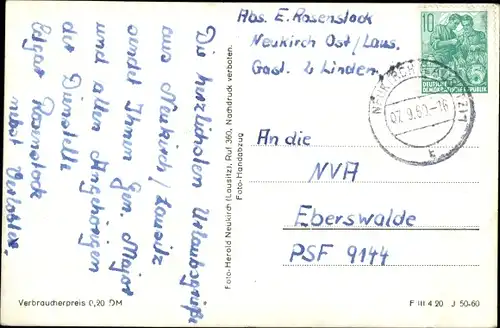 Die herzlichsten Urlaubsgrüße
aus Neukirch/Lausitz
sendet Ihnen Gen. Major
und allen Angehörigen
der Dienstelle
Edgar Rosenstock
nebst Verlobter.
Verbraucherpreis 0,20 DM
Foto-Herold Neukirch (Lausitz), Ruf 360, Nachdruck verboten.
Foto-Handabzug
Abs. E. Rosenstock
Neukirch Ost/Laus.
Gast. 4 Linden
10
DEUTSCHE
DEMOKRATISCHE REPUBLIK
07.9.60.-16
An die
NVA
Eberswalde
PSF 9144
F III 4 20 J 50-60